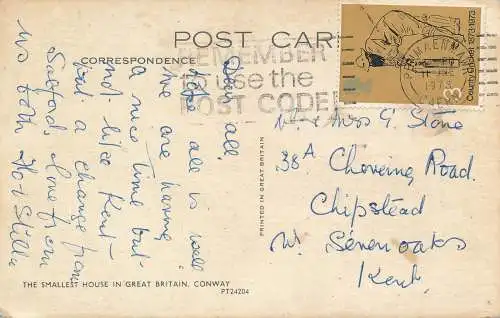 POST CARD
CORRESPONDENCE
REMEMBER
to use the
POST CODE
County Cricket 1873-1973
3
PENMAENMAWR
1973
Dear all,
Hope all is well
we are having
a nice time but
not like Kent
but a change from
Salford, love from
us both
Mr & Mrs G Stone
38A
Chevening Road.
Chipstead
Nr. Sevenoaks
Kent.
PRINTED IN GREAT BRITAIN
THE SMALLEST HOUSE IN GREAT BRITAIN, CONWAY
PT24204